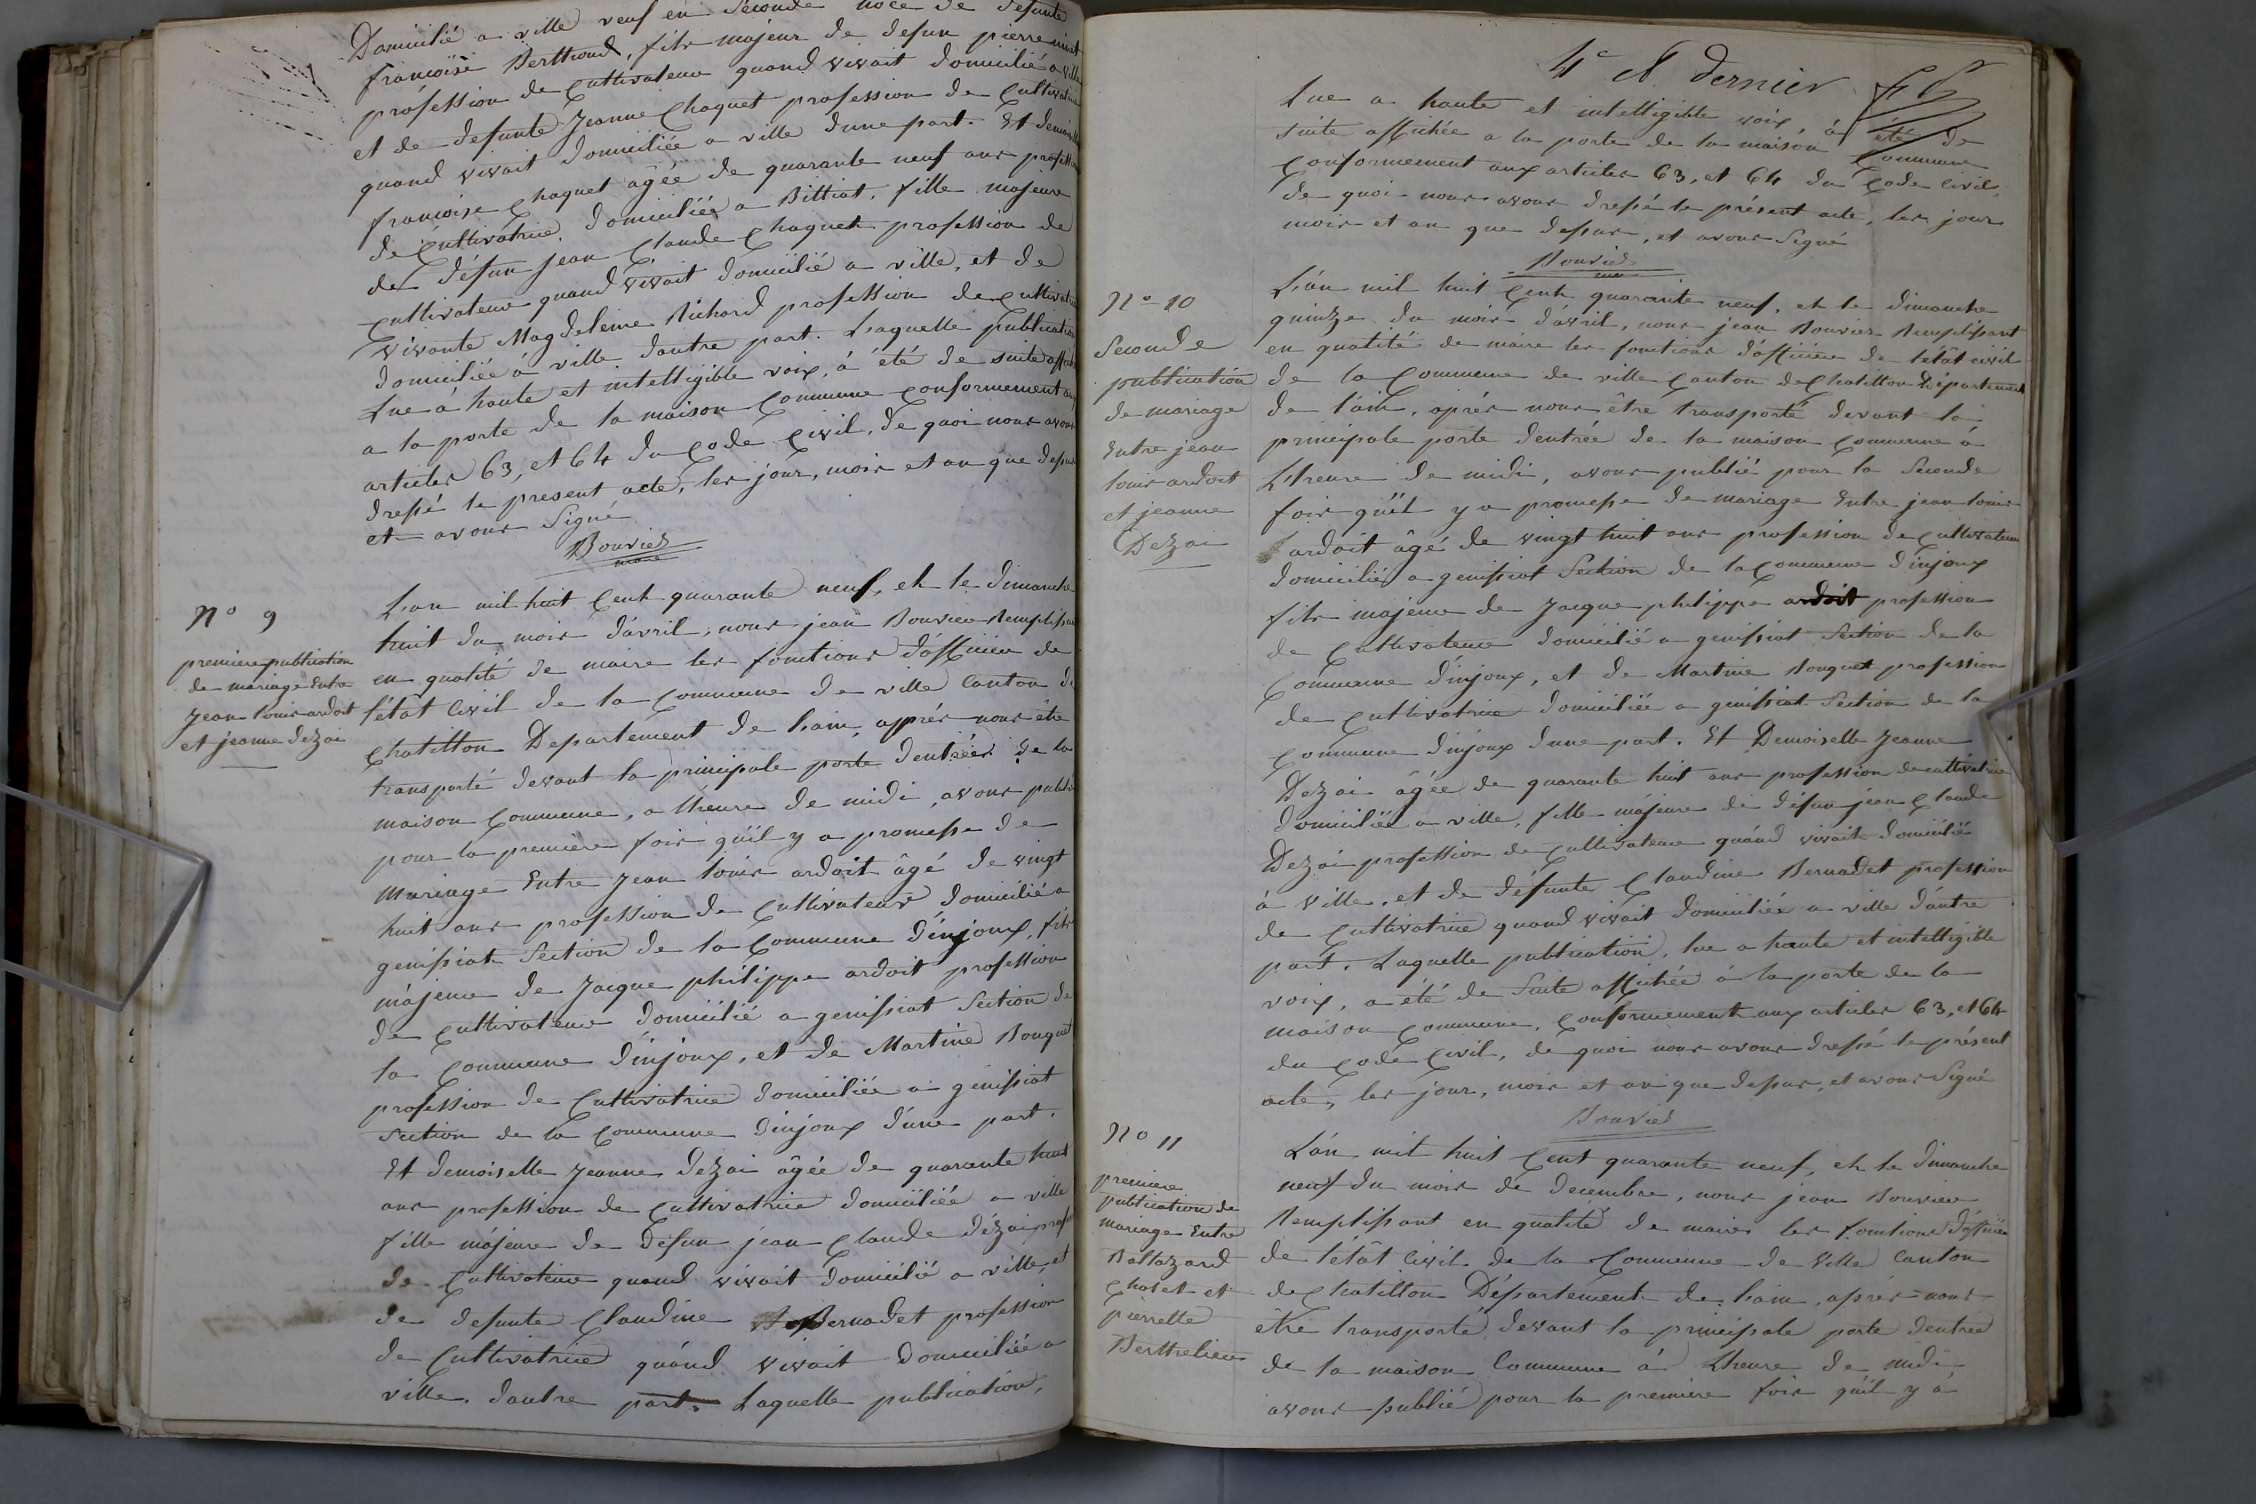 Domicilié a ville veuf en seconde noce de defunte
françoise Berthoud, fils majeur de defun pierre
profession de Cultivateur quand vivait domicilié a ville
et de defunte Jeanne Chaquet profession de Cultivatrice
quand vivait domiciliée a ville dune part. Et demoiselle
françoise Chaquet âgée de quarante neuf ans profession
de Cultivatrice, domiciliée a Billiat, fille majeure
de défun jean Claude Chaquet profession de
Cultivateur quand vivait domicilié a ville, et de
vivante Magdeleine Richard profession de Cultivatrice
domiciliée à ville dautre part. Laquelle publication
Lue à haute et intelligible voix, à été de suite affichée
a la porte de la maison Commune conformement aux
articles 63, et 64 du Code Civil, de quoi nous avons
dressé le present acte, les jour, mois et an que dessus
et avons Signé
Bouvier
maire
N° 9
premiere publication
de mariage Entre
Jean louis ardoit
et jeanne dezai
L'an mil huit Cent quarante neuf, et le dimanche
huit du mois d'avril, nous jean Bouvier Remplissant
en qualité de maire les fonctions d'officier de
l'état Civil de la Commune de ville Canton de
Chatillon Departement de lain, apprés nous être
transporté devant la principale porte dentréer de la
maison Commune, a lheure de midi, avons publié
pour la première fois qu'il y a promesse de
Mariage Entre Jean louis ardoit âgé de vingt
huit ans profession de Cultivateur domicilié a
genissiat Section de la Commune d'injoux, fils
májeur de Jacque philippe ardoit profession
de Cultivateur domicilié a genissiat Section de
la Commune d'injoux, et de Martine Bouquet
profession de Cultivatrice domiciliée a génissiat
Section de la Commune d'injoux d'une part.
Et demoiselle Jeanne dezai âgée de quarante huit
ans profession de Cultivatrice domiciliée a ville
fille májeure de défun jean Claude dézai profession
de Cultivateur quand vivait domicilié a ville, et
de defunte Claudine Bernadet profession
de Cultivatrice quánd vivait Domiciliée a
ville, dautre part. Laquelle publication,
4e et dernier
Lue a haute et intelligible voix à été de
suite affichée a la porte de la maison Commune
Conformement aux articles 63, et 64 du Code Civil,
de quoi nous avons dressé le présent acte, les jour
mois et an que dessus, et avons Signé
Bouvier
maire
N° 10
Seconde
publication
de mariage
Entre jean
louis ardoit
et jeanne
Dezai
L'án mil huit Cent quarante neuf, et le dimanche
quinze du mois d'avril, nous jean Bouvier Remplissant
en qualité de maire les fonctions d'officier de l'état civil
de la Commune de ville Canton de Chatillon Département
de l'ain, aprés nous être transporté devant la
principale porte dentrée de la maison Commune à
L'heure de midi, avons publié pour la Seconde
fois qu'il y a promesse de mariage Entre jean louis
ardoit âgé de vingt huit ans profession de Cultivateur
domicilié a genissiat Section de la Commune d'injoux
fils majeur de Jacque philippe ardoit profession
de Cultivateur domicilié a genissiat Section de la
Commune d'injoux, et de Martine Bouquet profession
de Cultivatrice domiciliée a genissiat Section de la
Commune d'injoux dune part. Et Demoiselle Jeanne
Dezai âgée de quarante huit ans profession de cultivatrice
domiciliée a ville, fille májeure de défun jean Claude
Dezai profession de Cultivateur quánd vivait domicilié
à ville, et de défunte Claudine Bernadet profession
de Cultivatrice quand vivait domiciliée a ville d'autre
part. Laquelle publication, lue a haute et intelligible
voix, a été de Suite affichée à la porte de la
maison Commune, Conformement aux articles 63, et 64
du Code Civil, de quoi nous avons dressé le présent
acte, les jour, mois et an que dessus, et avons Signé
Bouvier
N° 11
première
publication de
mariage Entre
Baltazard
Chatet et
pierrette
Berthelier
L'án mil huit Cent quarante neuf, et le dimanche
neuf du mois de decembre, nous jean Bouvier
Remplissant en qualité de maire les fonctions d'officier
de l'état Civil de la Commune de Ville Canton
de Chatillon Département de lain, aprés nous
être transporté devant la principale porte dentrée
de la maison Commune à Lheure de midi
avons publié pour la première fois qu'il y á